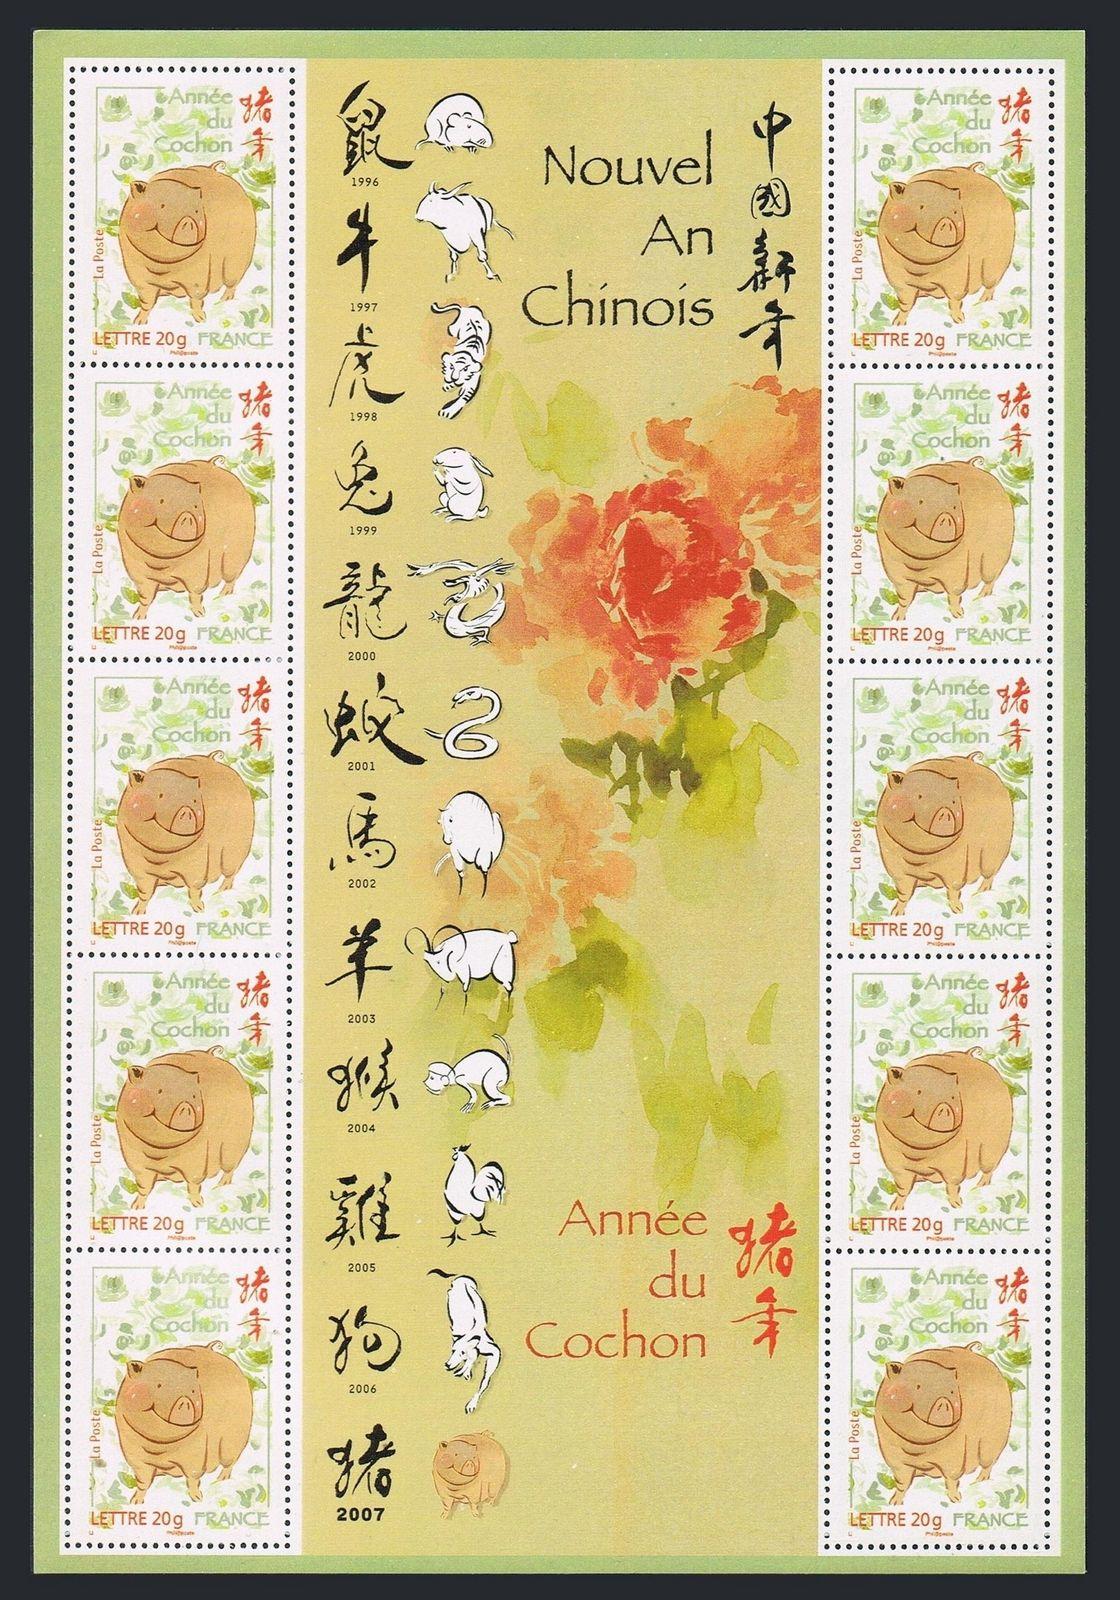 Année 猪
du 年
Cochon
La Poste
LETTRE 20g FRANCE
Phil@poste
Année 猪
du 年
Cochon
La Poste
LETTRE 20g FRANCE
Phil@poste
Année 猪
du 年
Cochon
La Poste
LETTRE 20g FRANCE
Phil@poste
Année 猪
du 年
Cochon
La Poste
LETTRE 20g FRANCE
Phil@poste
Année 猪
du 年
Cochon
La Poste
LETTRE 20g FRANCE
Phil@poste
鼠
1996
牛
1997
虎
1998
兔
1999
龍
2000
蛇
2001
馬
2002
羊
2003
猴
2004
雞
2005
狗
2006
猪
2007
Nouvel
An
Chinois
中國新年
Année
du
Cochon
猪年
Année 猪
du 年
Cochon
La Poste
LETTRE 20g FRANCE
Phil@poste
Année 猪
du 年
Cochon
La Poste
LETTRE 20g FRANCE
Phil@poste
Année 猪
du 年
Cochon
La Poste
LETTRE 20g FRANCE
Phil@poste
Année 猪
du 年
Cochon
La Poste
LETTRE 20g FRANCE
Phil@poste
Année 猪
du 年
Cochon
La Poste
LETTRE 20g FRANCE
Phil@poste